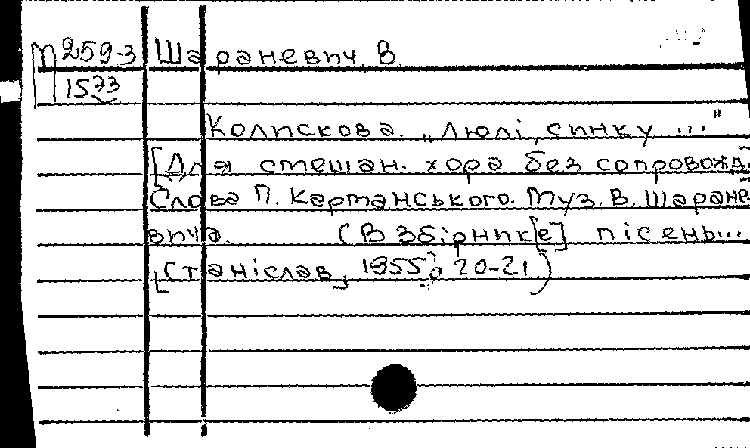 П259-3 Шараневич, В.
1573
Колискова. „Люлі, синку ..."
[Для смешан. хора без сопровожд.]
Слова П. Карманського. Муз. В. Шаране
вича. (В збірник[е] пісень...
[Станіслав], 1955, 20-21)